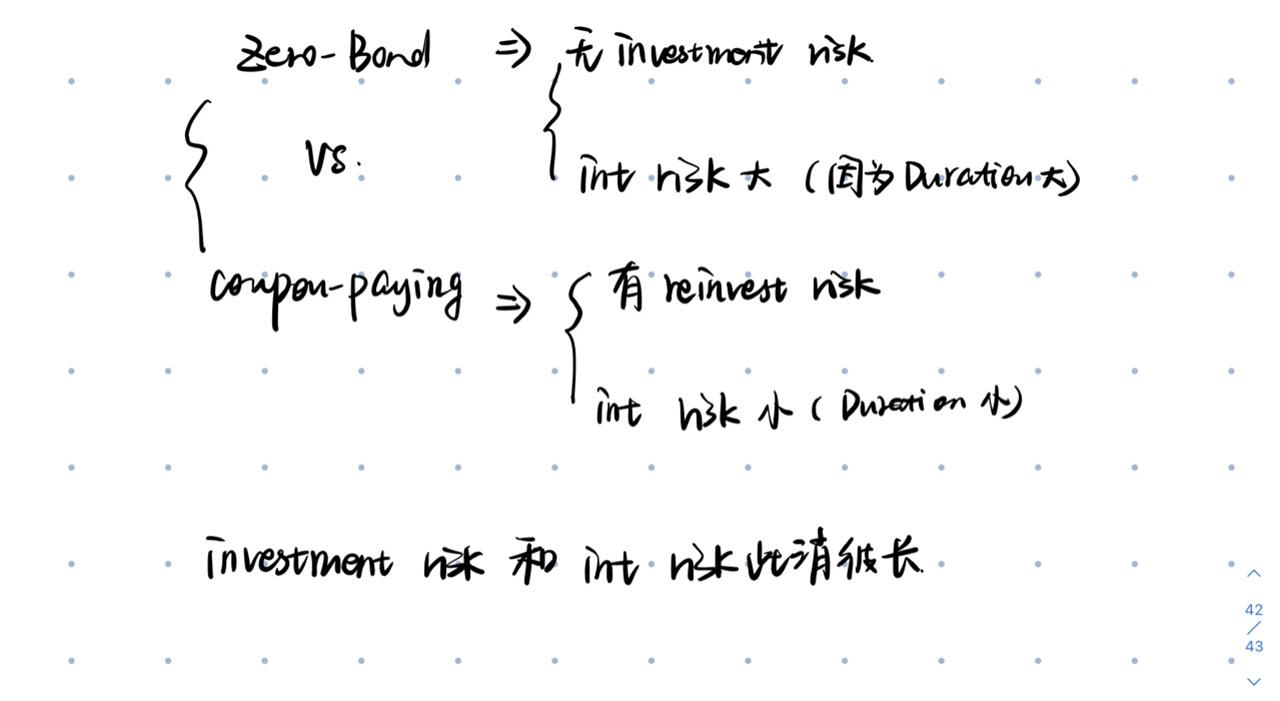 Zero-Bond ⇒ 无 investment risk
VS.
int risk 大 (因为 Duration大)
coupon-paying ⇒ 有 reinvest risk
int risk 小 ( Duration 小)
investment risk 和 int risk 此消彼长
42
/
43